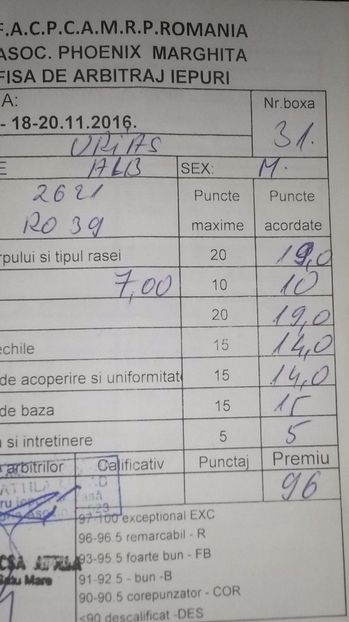 F.A.C.P.C.A.M.R.P.ROMANIA
ASOC. PHOENIX MARGHITA
FISA DE ARBITRAJ IEPURI
A:
- 18-20.11.2016.
Nr.boxa
31.
URIAS
E ALB SEX: M.
2621
RO 39
Puncte maxime
Puncte acordate
rpului si tipul rasei 20 19,0
7,00 10 10
20 19,0
echile 15 14,0
de acoperire si uniformitate 15 14,0
de baza 15 15
si intretinere 5 5
arbitrilor Calificativ Punctaj Premiu
96
ATTILA
97-100 exceptional EXC
96-96.5 remarcabil - R
93-95.5 foarte bun - FB
91-92 5 - bun -B
90-90.5 corepunzator - COR
<90 descalificat -DES
Satu Mare